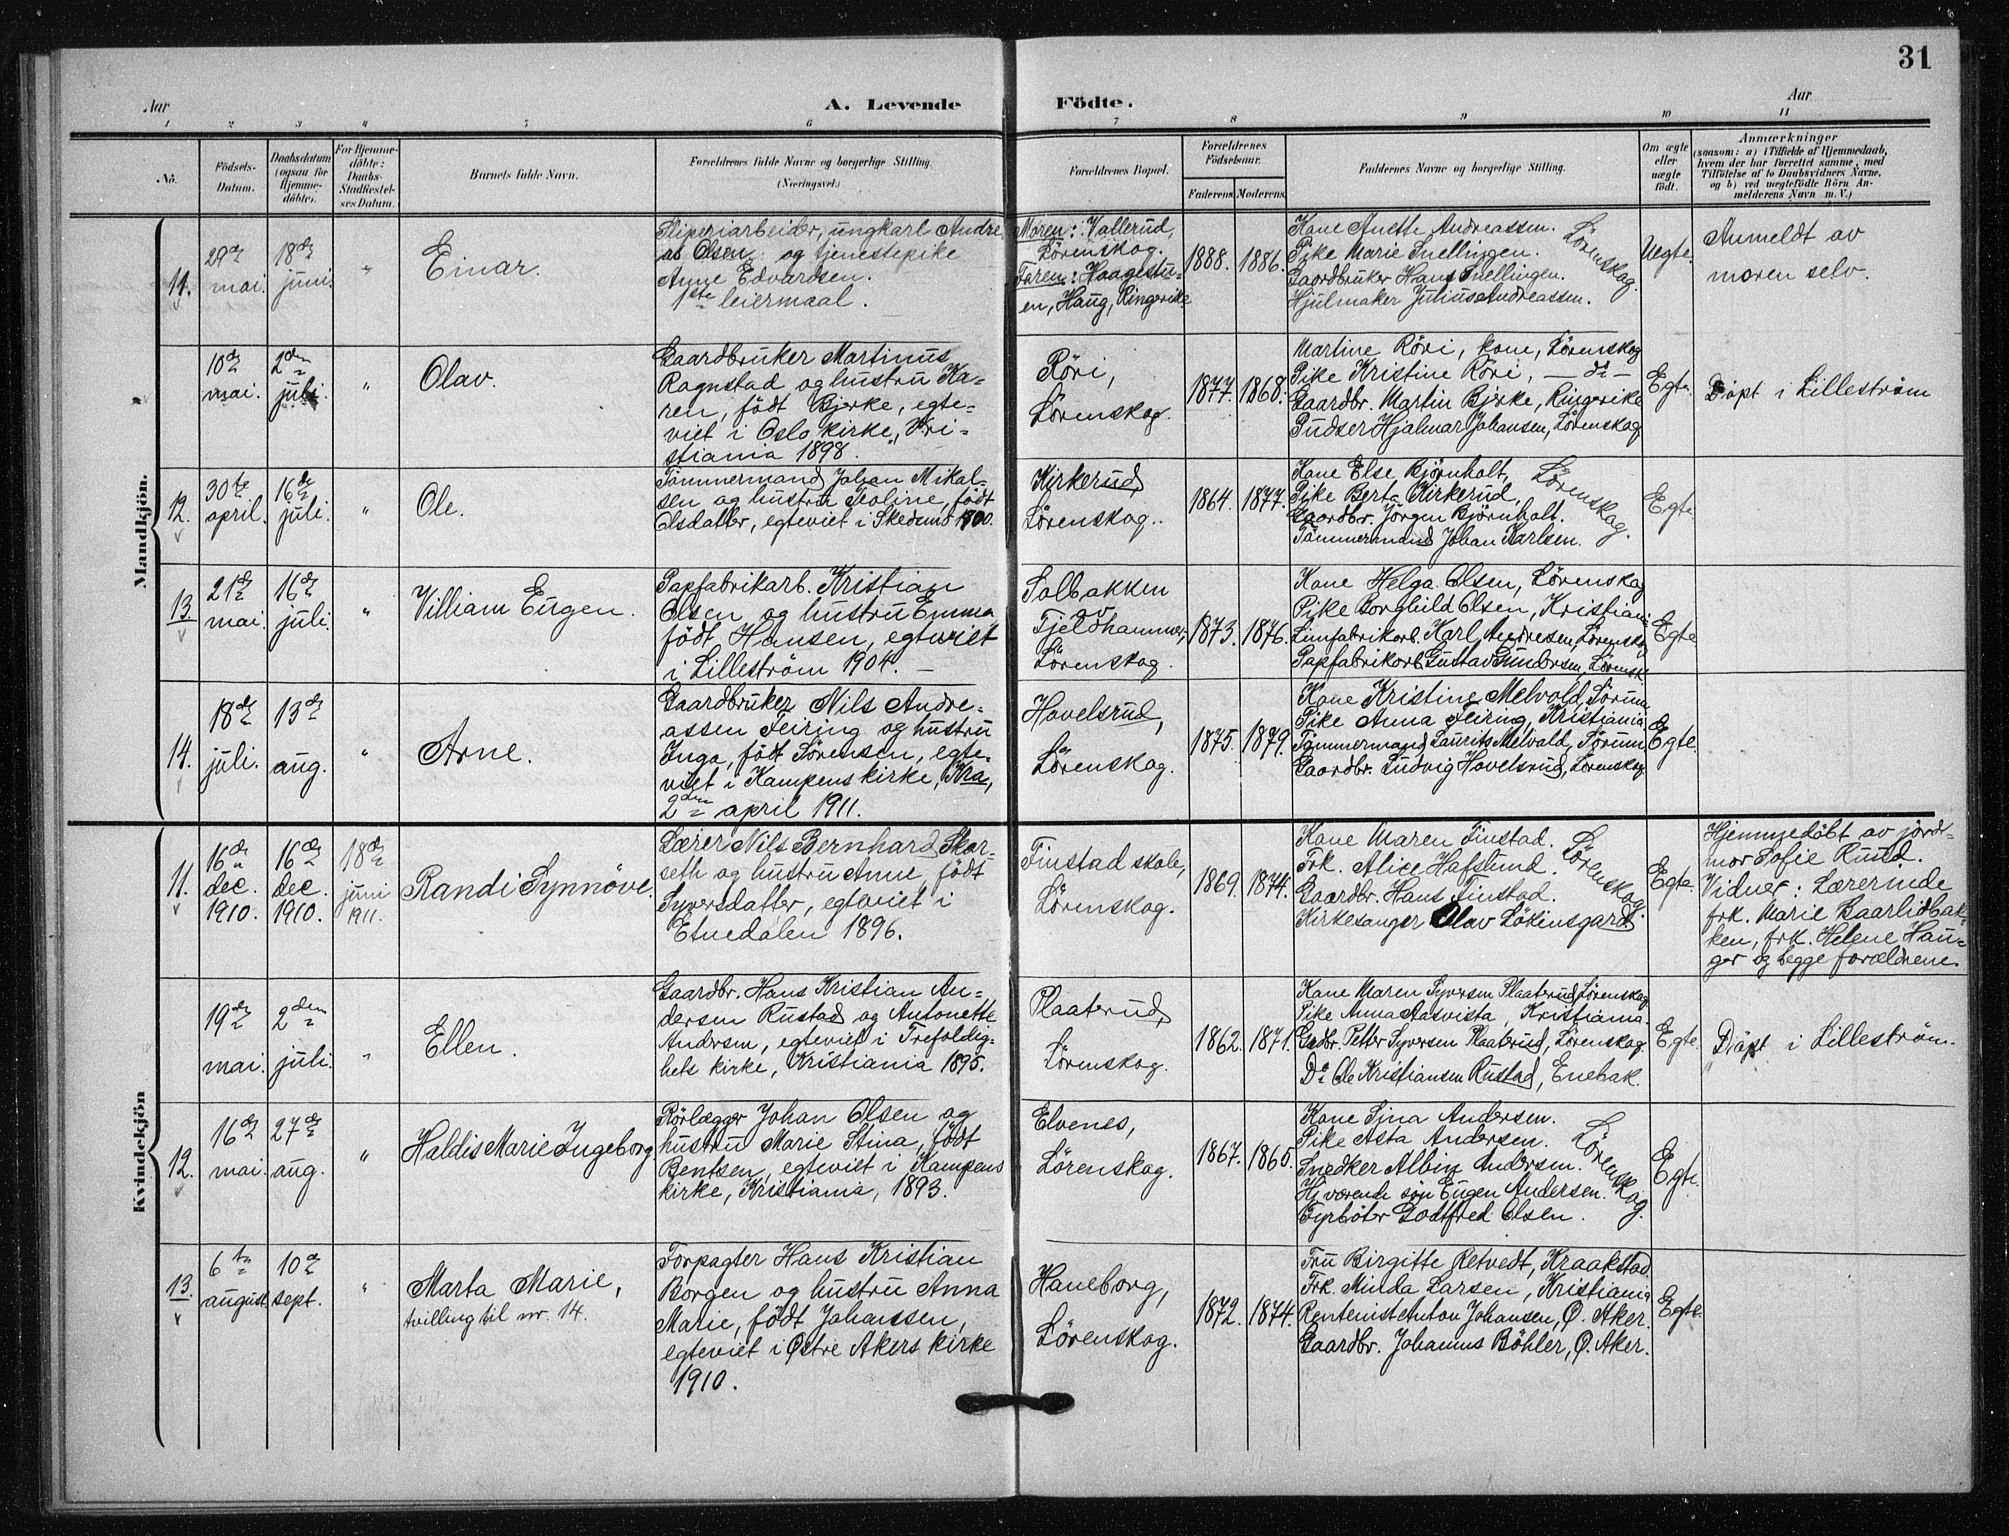 31
Aar
A. Levende
Födte.
Aar
1 2 3 4 5 6 7 8 9 10 11
No.
Födsels-
Datum.
Daabsdatum
(ogsaa for
Hjemme-
döbte).
For Hjemme-
döbte:
Daabs-
Stadfæstel-
ses Datum.
Barnets fulde Navn.
Forældrenes fulde Navne og borgerlige Stilling.
(Næringsvei.)
Forældrenes Bopæl.
Forældrenes
Födselsaar.
Faderens.
Moderens.
Faddernes Navne og borgerlige Stilling.
Om ægte
eller
uægte
födt.
Anmærkninger
(saasom: a) i Tilfælde af Hjemmedaab,
hvem der har forrettet samme, med
Tilföielse af to Daabsvidners Navne,
og b) ved uægtefödte Börn An-
melderens Navn m. V.)
Mandkjön.
11.
29de
mai.
18de
juni.
"
Einar.
Sliperiarbeider, ungkarl Andre-
as Olsen og tjenestepike
Anne Edvardsen.
1ste leiermaal.
Moren: Vallerud,
Lörenskog.
Faren: Haagestu-
en, Haug, Ringerike
1888.
1886.
Kone Anette Andreassen.
Pike Marie Snellingen.
Gaardbruker Hans Snellingen.
Hjulmaker Julius Andreassen.
Lörenskog.
Uegte.
Anmeldt av
moren selv.
10de
mai.
2den
juli.
"
Olav.
Gaardbruker Martinus
Ragnstad og hustru Ka-
ren, födt Bjerke, egte-
viet i Oslo kirke, Kri-
stiania 1898.
Röri,
Lörenskog.
1877.
1868.
Martine Röri, kone, Lörenskog
Pike Kristine Röri, — do —
Gaardbr. Martin Bjerke, Ringerike
Pudser Hjalmar Johansen, Lörenskog
Egte.
Döpt i Lilleström
12.
30te
april.
16de
juli.
"
Ole.
Tömmermand Johan Mikal-
sen og hustru Teoline, födt
Olsdatter, egteviet i Skedsmo 1900.
Kirkerud,
Lörenskog.
1864.
1877.
Kone Else Björnholt,
Pike Berta Kirkerud,
Gaardbr. Jörgen Björnholt.
Tömmermand Johan Karlsen.
Lörenskog.
Egte
13.
21de
mai.
16de
juli.
"
Villiam Eugen.
Papfabrikarb. Kristian
Olsen og hustru Emma
födt Hansen, egteviet
i Lilleström 1904.
Solbakken
av
Fjeldhammer,
Lörenskog.
1873.
1876.
Kone Helga Olsen, Lörenskog
Pike Borghild Olsen, Kristiania
Limfabrikarb. Karl Andresen, Lörensko
Papfabrikarb. Gustav Gundersen, Lörensk.
Egte
14.
18de
juli.
13de
aug.
"
Arne.
Gaardbruker Nils Andre-
assen Feiring og hustru
Inga, födt Sörensen, egte-
viet i Kampens kirke, Kra,
2den april 1911.
Hovelsrud,
Lörenskog.
1875.
1879.
Kone Kristine Melvold, Sörum,
Pike Anna Feiring, Kristiania
Tömmermand Laurits Melvald, Sörum
Gaardbr. Ludvig Hovelsrud, Lörenskog
Egte.
Kvindekjön
11.
16de
dec.
1910.
16de
dec.
1910.
18de
juni
1911.
Randi Synnöve.
Lærer Nils Bernhard Skar-
seth og hustru Anne, födt
Syversdatter, egteviet i
Etnedalen 1896.
Finstad skole,
Lörenskog.
1869.
1874.
Kone Maren Finstad.
Frk. Alice Hafslund.
Gaardbr. Hans Finstad.
Kirkesanger Olav Lökensgard.
Lörenskog.
Egte.
Hjemmedöbt av jord-
mor Sofie Ruud.
Vidner: Lærerinde
frk. Marie Baarlidbak-
ken, frk. Helene Hau-
ger og begge forældrene.
19de
mai.
2den
juli.
"
Ellen.
Gaardbr. Hans Kristian An-
dersen Rustad og Antonette
Andersen, egteviet i Trefoldig-
hets kirke, Kristiania 1895.
Plaaterud,
Lörenskog.
1862.
1871.
Kone Maren Syversen Plaaterud, Lörenskog
Pike Anna Aasvista, Kristiania.
Gadbr. Petter Syversen Plaaterud, Lörenskog
Do Ole Kristiansen Rustad, Enebak.
Egte.
Döpt i Lilleström.
12.
16de
mai.
27de
aug.
"
Haldis Marie Ingeborg
Rörlægger Johan Olsen og
hustru Marie Stina, födt
Bentsen, egteviet i Kampens
kirke, Kristiania, 1893.
Elvenes,
Lörenskog.
1867.
1865.
Kone Sina Andersen.
Pike Asta Andersen.
Snedker Albin Andersen.
Hj.værende sön Eugen Andersen.
Fyrböter Godtfred Olsen.
Lörenskog.
Egte.
13.
6te
august
10de
sept.
"
Marta Marie,
tvilling til nr. 14.
Forpagter Hans Kristian
Borgen og hustru Anna
Marie, födt Johanssen,
egteviet i Östre Akers kirke
1910.
Haneborg,
Lörenskog.
1872.
1874.
Fru Birgitte Retvedt, Kraakstad
Frk. Minda Larsen, Kristiania
Rentenist Anton Johansen, Ø. Aker.
Gaardbr. Johannes Böhler, Ø. Aker.
Egte.